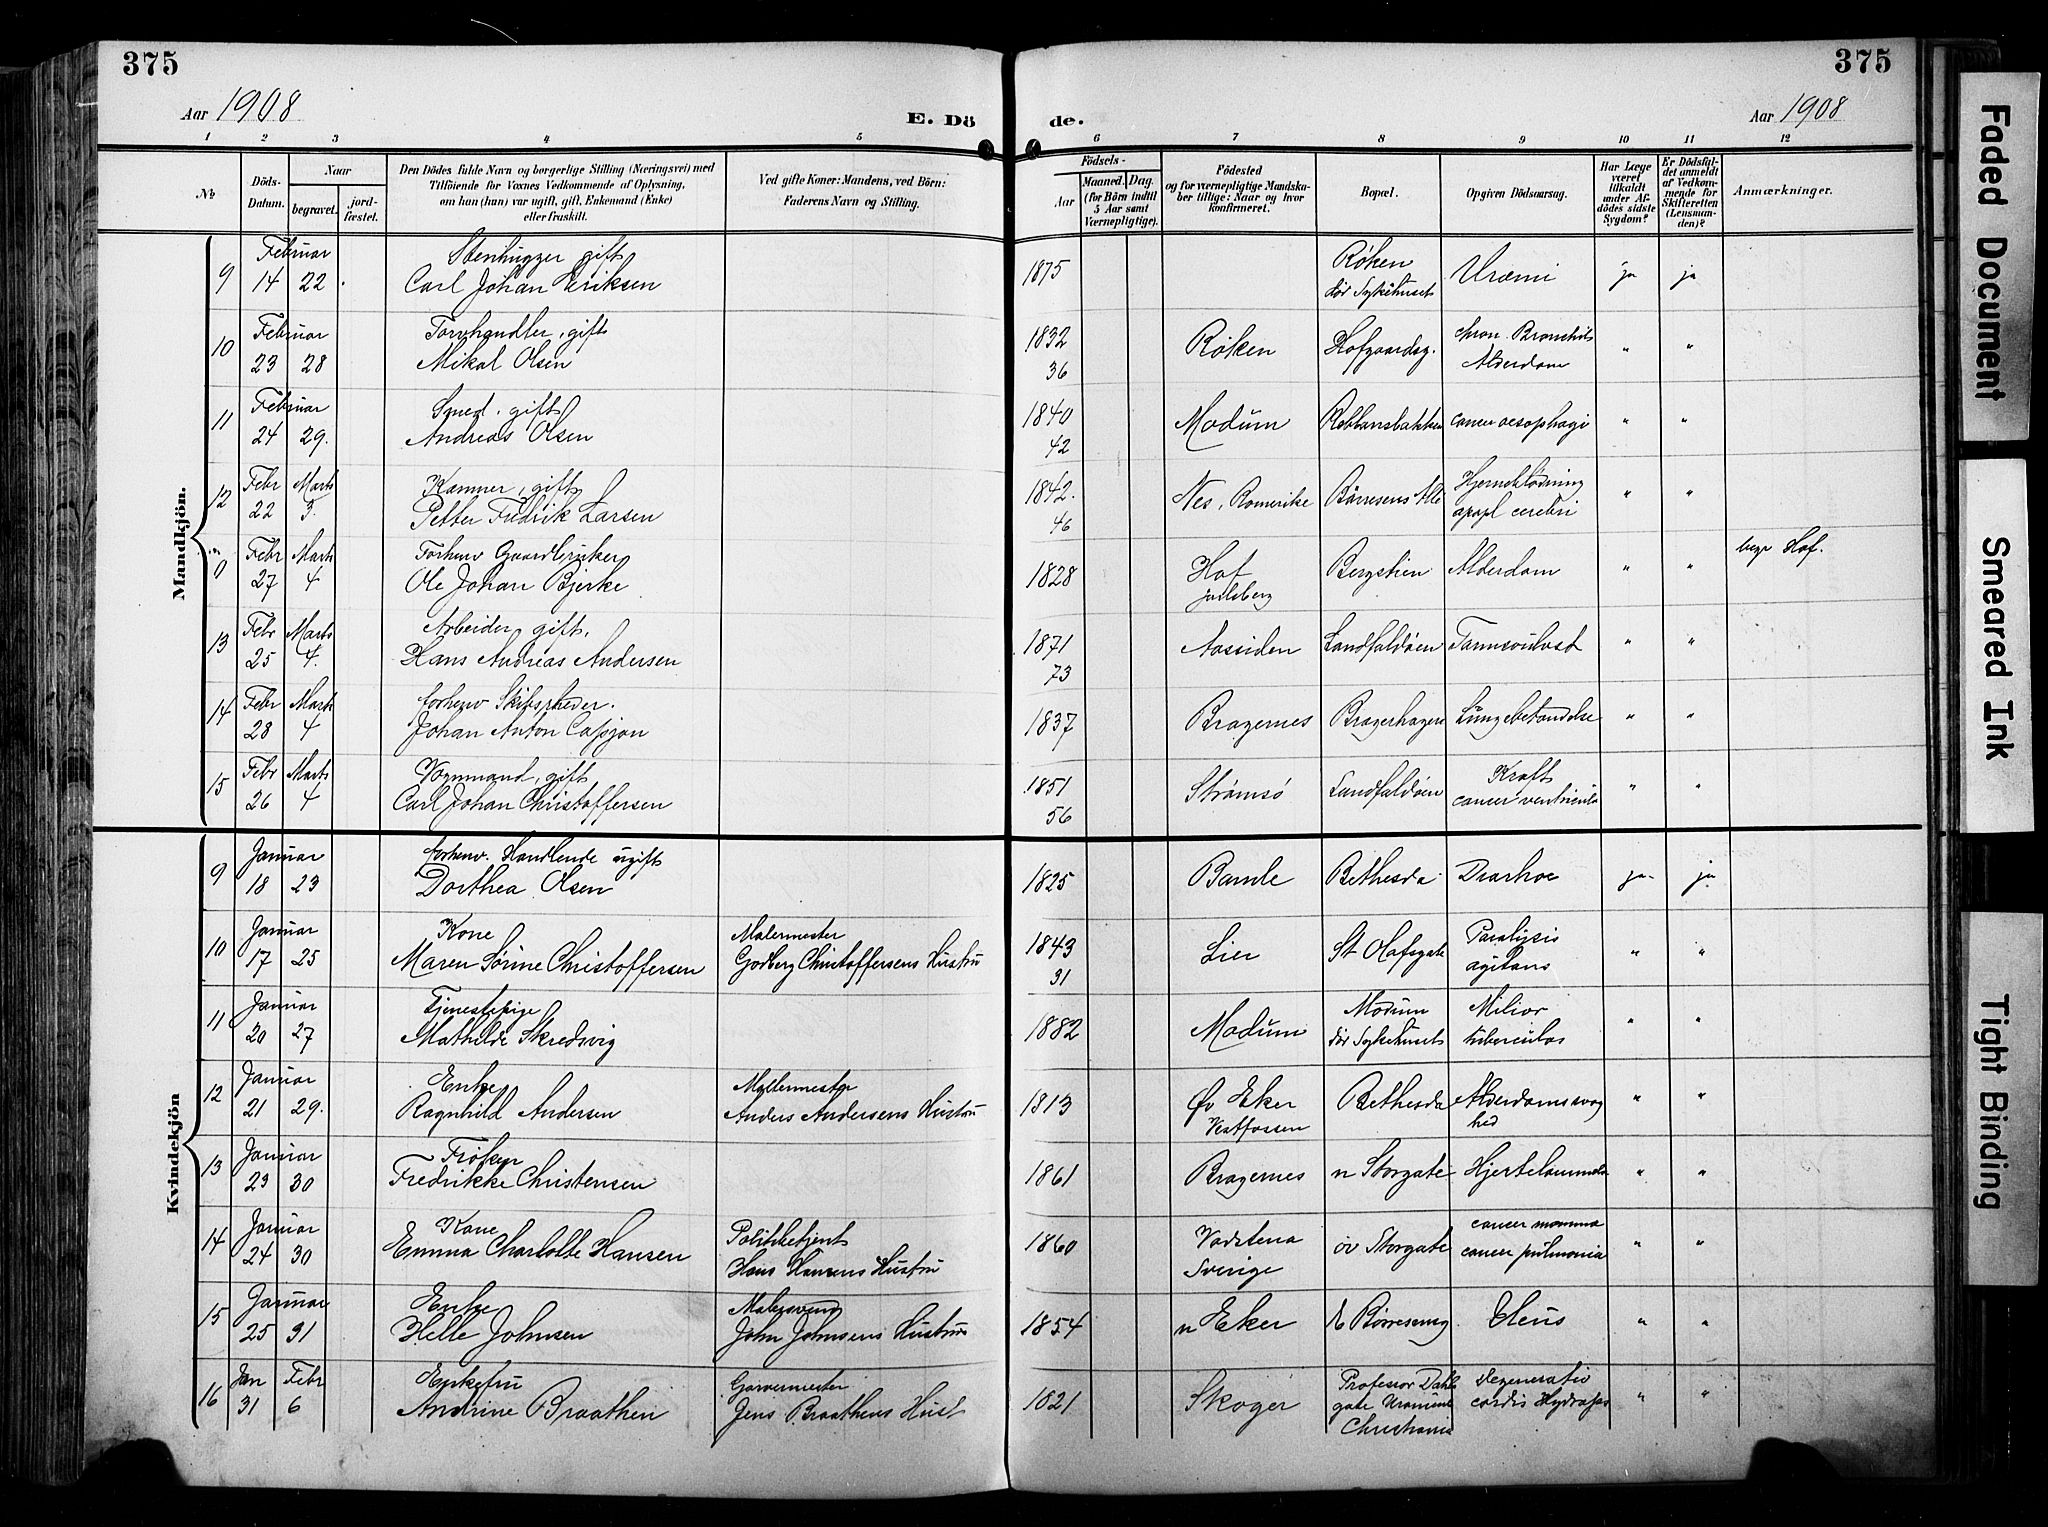 375
375
Aar 1908
E. Dö
de.
Aar 1908
1 2 3 4 5 6 7 8 9 10 11 12
No
Döds-Datum.
Naar
begravet.
jord-fæstet.
Den Dödes fulde Navn og borgerlige Stilling (Næringsvei) med
Tilföiende for Voxnes Vedkommende af Oplysning,
om han (hun) var ugift, gift, Enkemand (Enke)
eller fraskilt.
Ved gifte Koner: Mandens, ved Börn:
Faderens Navn og Stilling.
Födsels-
Aar
Maaned. Dag.
(for Börn indtil
5 Aar samt
Værnepligtige).
Födested
og for værnepligtige Mandska-
ber tillige: Naar og hvor
konfirmeret.
Bopæl.
Opgiven Dödsaarsag.
Har Læge
været
tilkaldt
under Af-
dödes sidste
Sygdom?
Er Dödsfal-
det anmeldt
af Vedkom-
mende for
Skifteretten
(Lensman-
den)?
Anmærkninger.
Mandkjön.
Februar Stenhugger gift Røken
9 14 22 Carl Johan Eriksen 1875 dør Sykehuset Uræmi ja ja
Februar Torvhandler, gift 1832 chron. Bronchitis
10 23 28 Mikal Olsen 36 Røken Hofgaardsg. Alderdom " "
Februar Smed. gift 1840
11 24 29. Andreas Olsen 42 Modum cancer oesophagi " "
Febr Marts gift 1842. Hjerneblødning
12 22 3. Petter Fredrik Larsen 46 Nes, Romerike Börresens Alle apopl cerebri " "
Febr Marts Forhenv Gaardbruker begr Hof.
0 27 4 Ole Johan Bjerke 1828 Hof Jarlsberg Bergstien Alderdom " "
Febr Marts Arbeider gift. 1871
13 25 4. Hans Andreas Andersen 73 Aassiden Landfaldøen " "
Febr Marts forhenv Skibsrheder.
14 28 4 Johan Anton 1837 Bragernes Lungebetændelse " "
Febr Marts Vognmand, gift 1851 Kræft
15 26 4 Carl Johan Christoffersen 56 Strømsø Landfaldøen cancer ventriculi " "
Kvindekjön
Januar forhenv. Handlende ugift
9 18 23 Dorthea Olsen 1825 Bamle Bethesda Diarhoe ja ja
Januar Kone Malermester 1843 Paralysis
10 17 25 Maren Sørine Christoffersen Godberg Christoffersens Hustru 31 Lier St Olafsgate agitans " "
Januar Tjenestepige Modum Miliær
11 20 27 Mathilde Skredsvig 1882 Modum dør Sykehuset tuberculos " "
Januar Enke Møllermester
12 21 29. Ragnhild Andersen Anders Andersens Hustru 1813 Øv Eker Vestfossen Bethesda Alderdomssvaghed " "
Januar Frøken
13 23 30 Fredrikke Christensen 1861 Bragernes n Storgate Hjertelammelse " "
Januar Kone Politibetjent cancer mamma
14 24 30 Emma Charlotte Hansen Hans Hansens Hustru 1860 Vadstena Sverige øv Storgate cancer pulmonia " "
Januar Enke Malersvend
15 25 31 Helle Johnsen John Johnsens Hustru 1854 n Eker Ileus " "
Jan Febr Enkefru Garvermester Professor Dahls degeneratio
16 31 6 Andrine Braathen Jens Braathens Hust 1821 Skoger gate Uranienb Christiania cordis Hydrops " "
Faded Document
Smeared Ink
Tight Binding